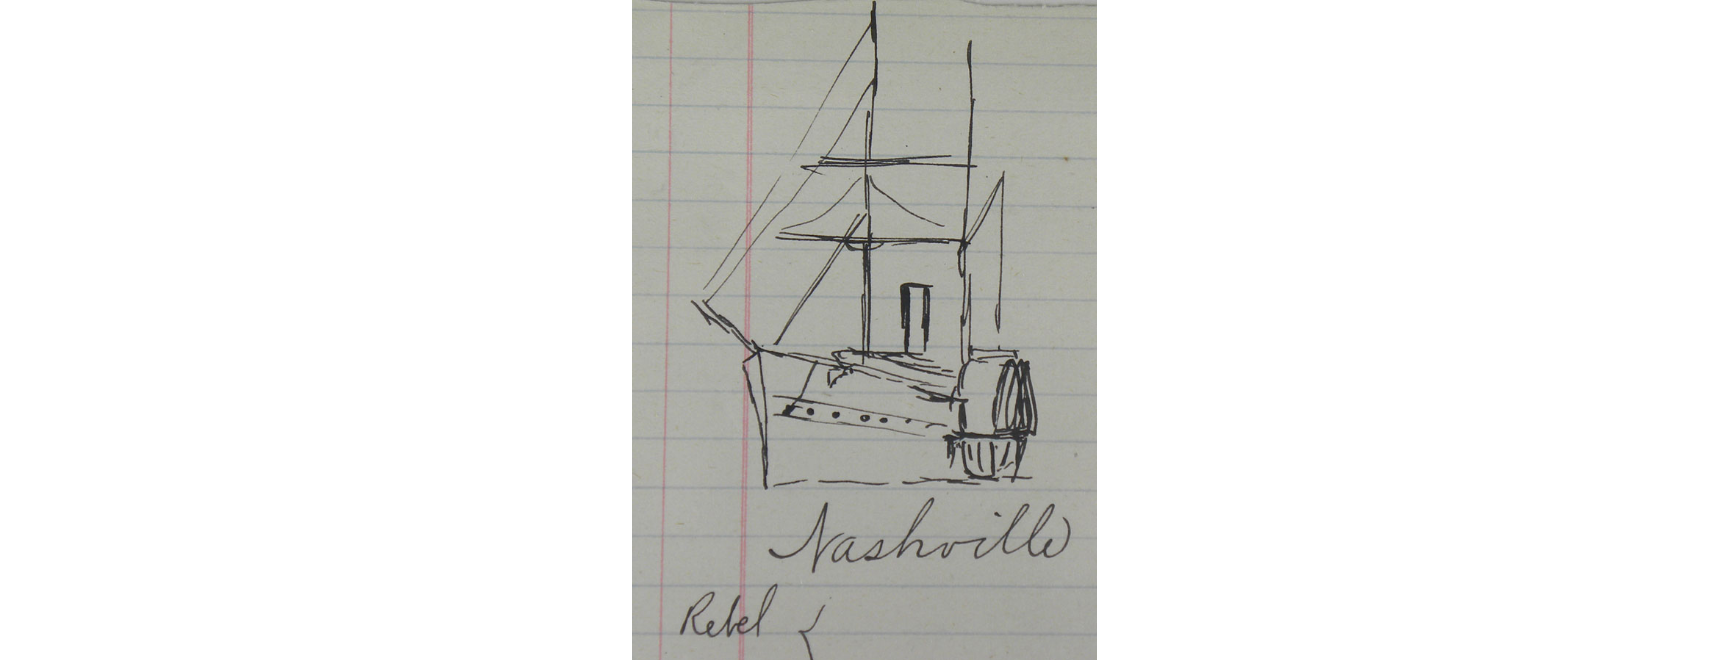 Nashville
Rebel {